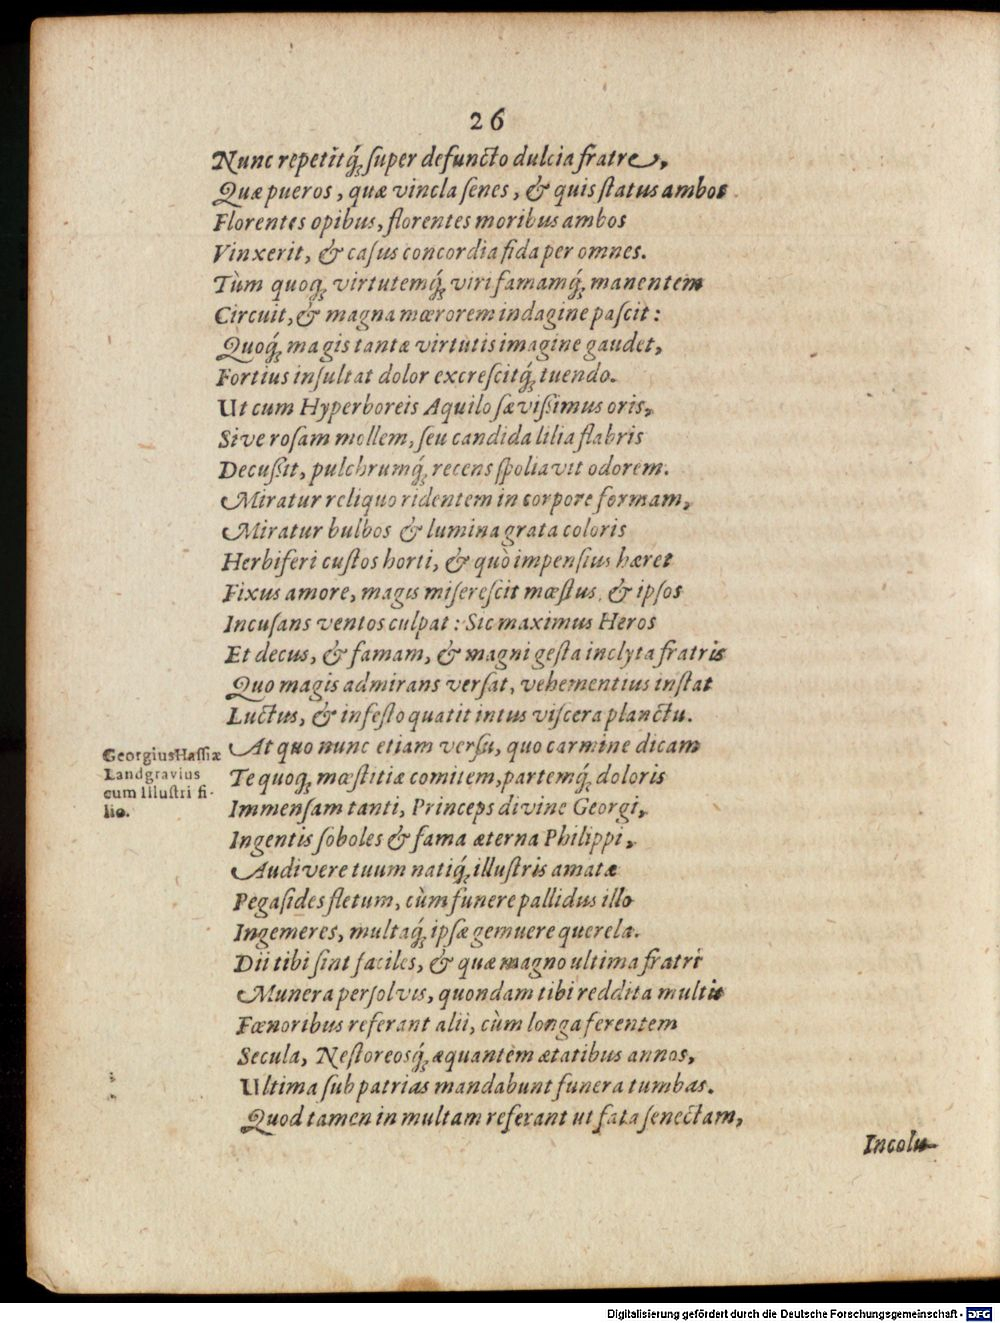 26
Nunc repetitq́ꝫ ſuper defuncto dulcia fratre,
Quæ pueros, quæ vincla ſenes, & quis ſtatus ambos
Florentes opibus, florentes moribus ambos
Vinxerit, & caſus concordia fida per omnes.
Tùm quoqꝫ virtutemq́ꝫ viri famamq́ꝫ manentem
Circuit, & magna mœrorem indagine paſcit:
Quoq́ꝫ magis tantæ virtutis imagine gaudet,
Fortius inſultat dolor excreſcitq́ꝫ tuendo.
Ut cum Hyperboreis Aquilo ſæviſsimus oris,
Sive roſam mollem, ſeu candida lilia flabris
Decuſsit, pulchrumq́ꝫ recens ſpoliavit odorem.
Miratur reliquo ridentem in corpore formam,
Miratur bulbos & lumina grata coloris
Herbiferi cuſtos horti, & quò impenſius hæret
Fixus amore, magis miſereſcit mœſtus, & ipſos
Incuſans ventos culpat: Sic maximus Heros
Et decus, & famam, & magni geſta inclyta fratris
Quo magis admirans verſat, vehementius inſtat
Luctus, & infeſto quatit intus viſcera planctu.
At quo nunc etiam verſu, quo carmine dicam
Georgius Haſſiæ
Landgravius
cum illuſtri fi-
lio.
Te quoqꝫ mœſtitiæ comitem, partemq́ꝫ doloris
Immenſam tanti, Princeps divine Georgi,
Ingentis ſoboles & fama æterna Philippi,
Audivere tuum natiq́ꝫ illuſtris amatæ
Pegaſides fletum, cùm funere pallidus illo
Ingemeres, multaq́ꝫ ipſæ gemuere querela.
Dii tibi ſint faciles, & quæ magno ultima fratri
Munera perſolvis, quondam tibi reddita multis
Fœnoribus referant alii, cùm longa ferentem
Secula, Neſtoreosq́ꝫ æquantem ætatibus annos,
Ultima ſub patrias mandabunt funera tumbas.
Quod tamen in multam referant ut fata ſenectam,
Incolu-
Digitalisierung gefördert durch die Deutsche Forschungsgemeinschaft - DFG